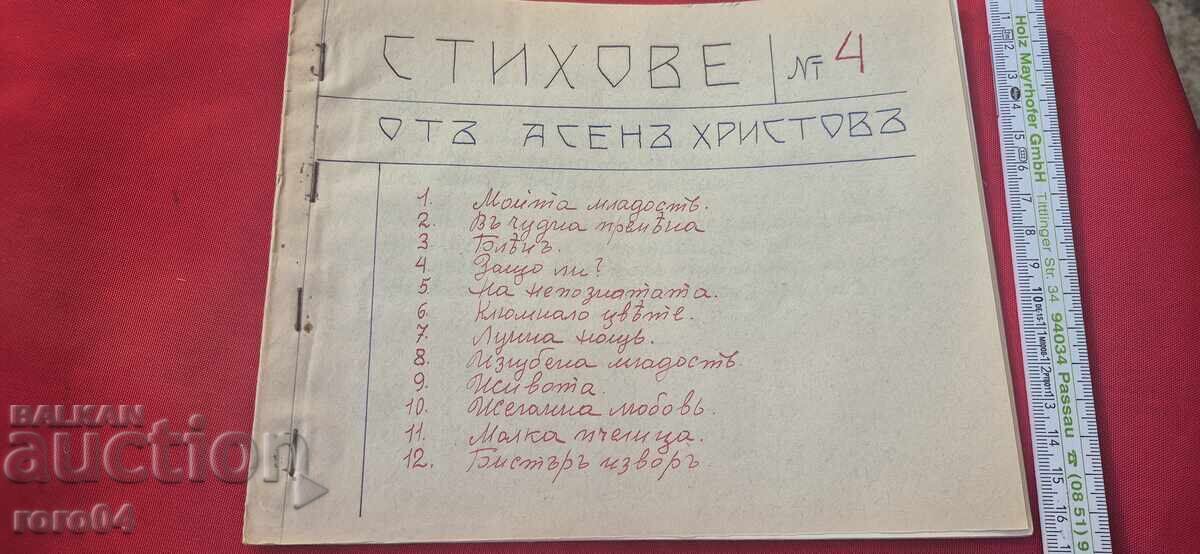 СТИХОВЕ № 4
ОТЪ АСЕНЪ ХРИСТОВЪ
1. Мойта младость.
2. Въ чудна премѣна
3. Блѣнъ.
4. Защо ли?
5. На непознатата.
6. Клюмнало цвѣте.
7. Лунна нощь.
8. Изгубена младость.
9. Живота.
10. Желанна любовь.
11. Малка пчелица.
12. Бистъръ изворъ
Holz Mayrhofer GmbH Tittlinger Str. 34 94034 Passau ☎ (08 51) 9
BALKAN
auction
roro64